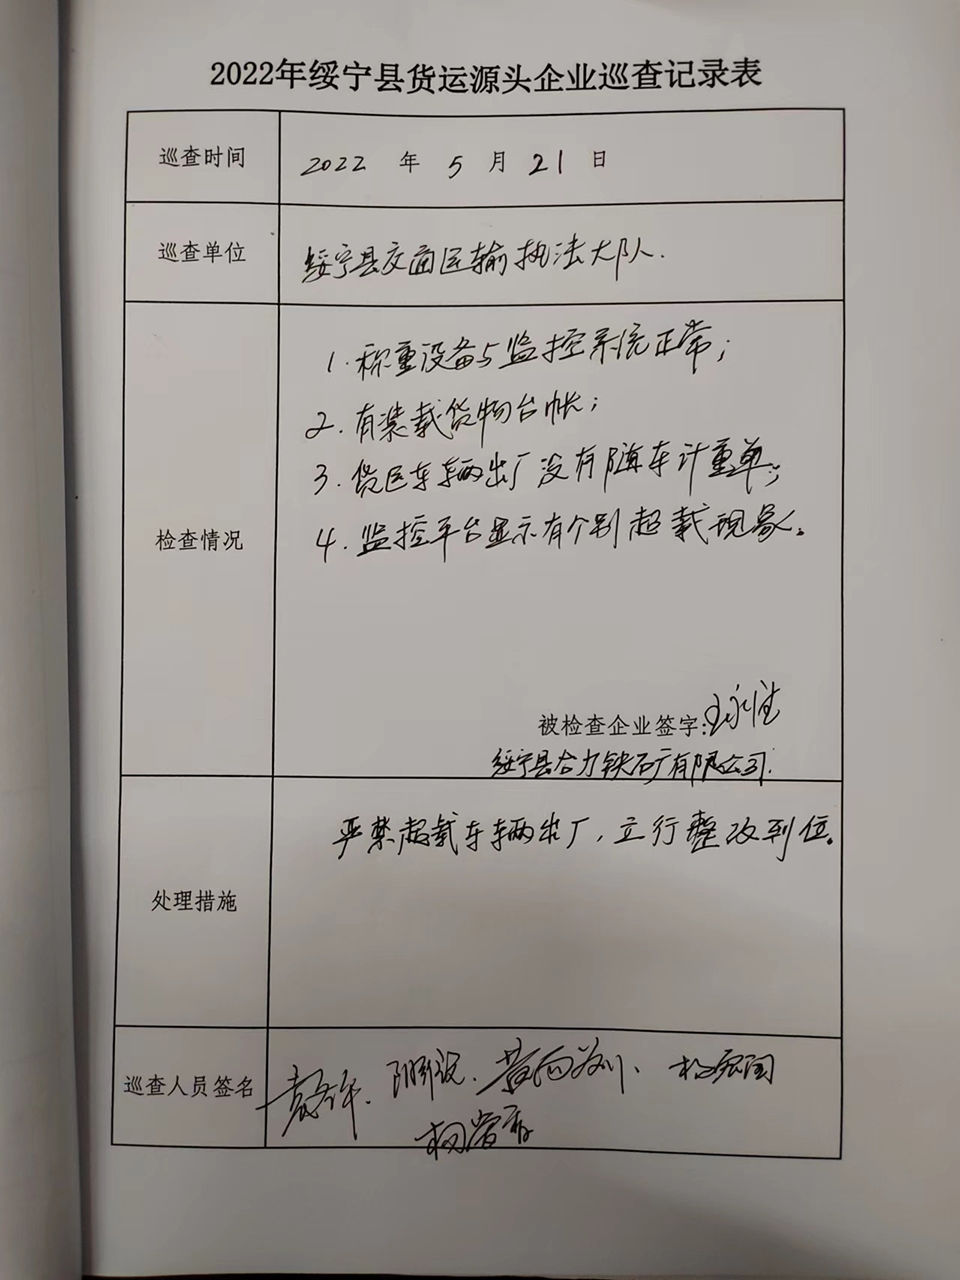 2022年绥宁县货运源头企业巡查记录表
巡查时间
2022 年 5 月 21 日
巡查单位
绥宁县交通运输执法大队.
检查情况
1.称重设备与监控系统正常;
2.有装载货物台帐;
3.货运车辆出厂没有随车计重单;
4.监控平台显示有个别超载现象。
被检查企业签字:
绥宁县合力铁矿有限公司.
处理措施
严禁超载车辆出厂,立行整改到位。
巡查人员签名